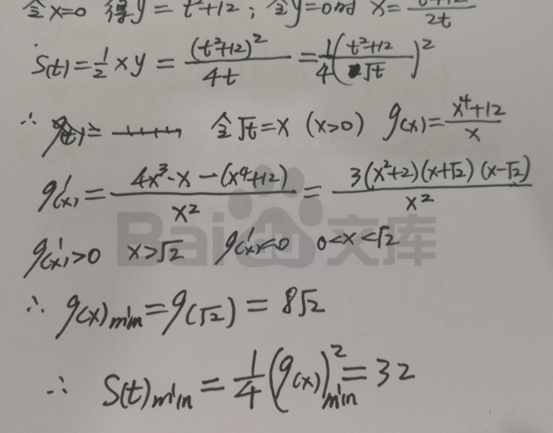 令x=0 得y=t²+12; 令y=0时 x=t²+12/2t
S(t)=½xy=(t²+12)²/4t=¼(t²+12/√t)²
∴ 令√t=x (x>0) g(x)=x⁴+12/x
g'(x)=4x³·x-(x⁴+12)/x²=3(x²+2)(x+√2)(x-√2)/x²
g'(x)>0 x>√2 g'(x)<0 0<x<√2
∴ g(x)min=g(√2)=8√2
∴ S(t)min=¼(g(x))²min=32
Bai 文库